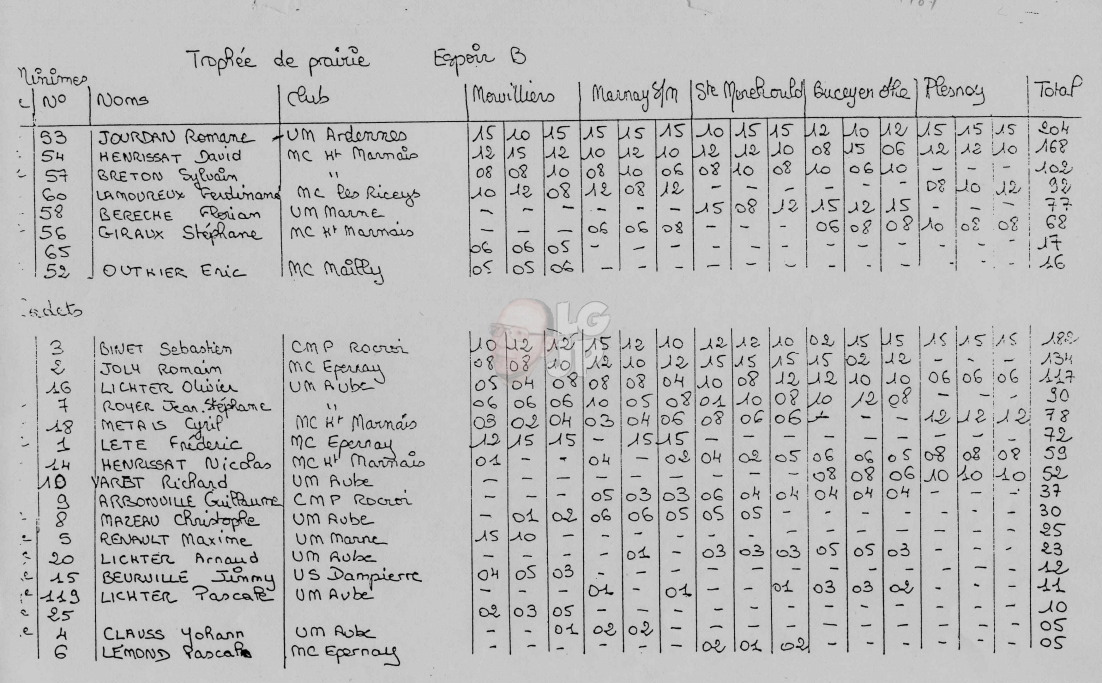 Trophée de prairie Espoir B
Minimes
N° Noms Club Morvilliers Marnay S/M Ste Menehould Bucey en Othe Plesnoy Total
53 JOURDAN Romane UM Ardennes 15 10 15 15 15 15 10 15 15 12 10 12 15 15 15 204
54 HENRISSAT David MC Ht Marnais 12 15 12 10 12 10 12 12 10 08 15 06 12 12 10 168
57 BRETON Sylvain " 08 08 10 08 10 06 08 10 08 10 06 10 - - - 102
60 LAMOUREUX Ferdinand MC les Riceys 10 12 08 12 08 12 - - - - - - 08 10 12 92
58 BERECHE Florian UM Marne - - - - - - 15 08 12 15 12 15 - - - 77
56 GIRAUX Stéphane MC Ht Marnais - - - 06 06 08 - - - 06 08 08 10 08 08 68
65 06 06 05 - - - - - - - - - - - - 17
52 OUTHIER Eric MC Mailly 05 05 06 - - - - - - - - - - - - 16
cadets
3 BINET Sebastien CMP Rocroi 10 12 12 15 12 10 12 12 10 02 15 15 15 15 15 182
2 JOLY Romain MC Epernay 08 08 10 12 10 12 15 15 15 15 02 12 - - - 134
16 LICHTER Olivier UM Aube 05 04 08 08 08 04 10 08 12 12 10 10 06 06 06 117
7 ROYER Jean.Stéphane " 06 06 06 10 05 08 01 10 08 10 12 08 - - - 90
18 METAIS Cyril MC Ht Marnais 03 02 04 03 04 06 08 06 06 - - - 12 12 12 78
1 LETE Fréderic MC Epernay 12 15 15 - 15 15 - - - - - - - - - 72
14 HENRISSAT Nicolas MC Ht Marnais 01 - - 04 - 02 04 02 05 06 06 05 08 08 08 59
10 VARET Richard UM Aube - - - - - - - - - 08 08 06 10 10 10 52
9 ARBONVILLE Guillaume CMP Rocroi - - - 05 03 03 06 04 04 04 04 04 - - - 37
8 MAZEAU Christophe UM Aube - 01 02 06 06 05 05 05 - - - - - - - 30
5 RENAULT Maxime UM Marne 15 10 - - - - - - - - - - - - - 25
20 LICHTER Arnaud UM Aube - - - - 01 - 03 03 03 05 05 03 - - - 23
15 BEURVILLE Jimmy US Dampierre 04 05 03 - - - - - - - - - - - - 12
119 LICHTER Pascale UM Aube - - - 01 - 01 - - 01 03 03 02 - - - 11
25 02 03 05 - - - - - - - - - - - - 10
4 CLAUSS Yohann UM Aube - - 01 02 02 - - - - - - - - - - 05
6 LEMOND Pascale MC Epernay - - - - - - 02 01 02 - - - - - - 05